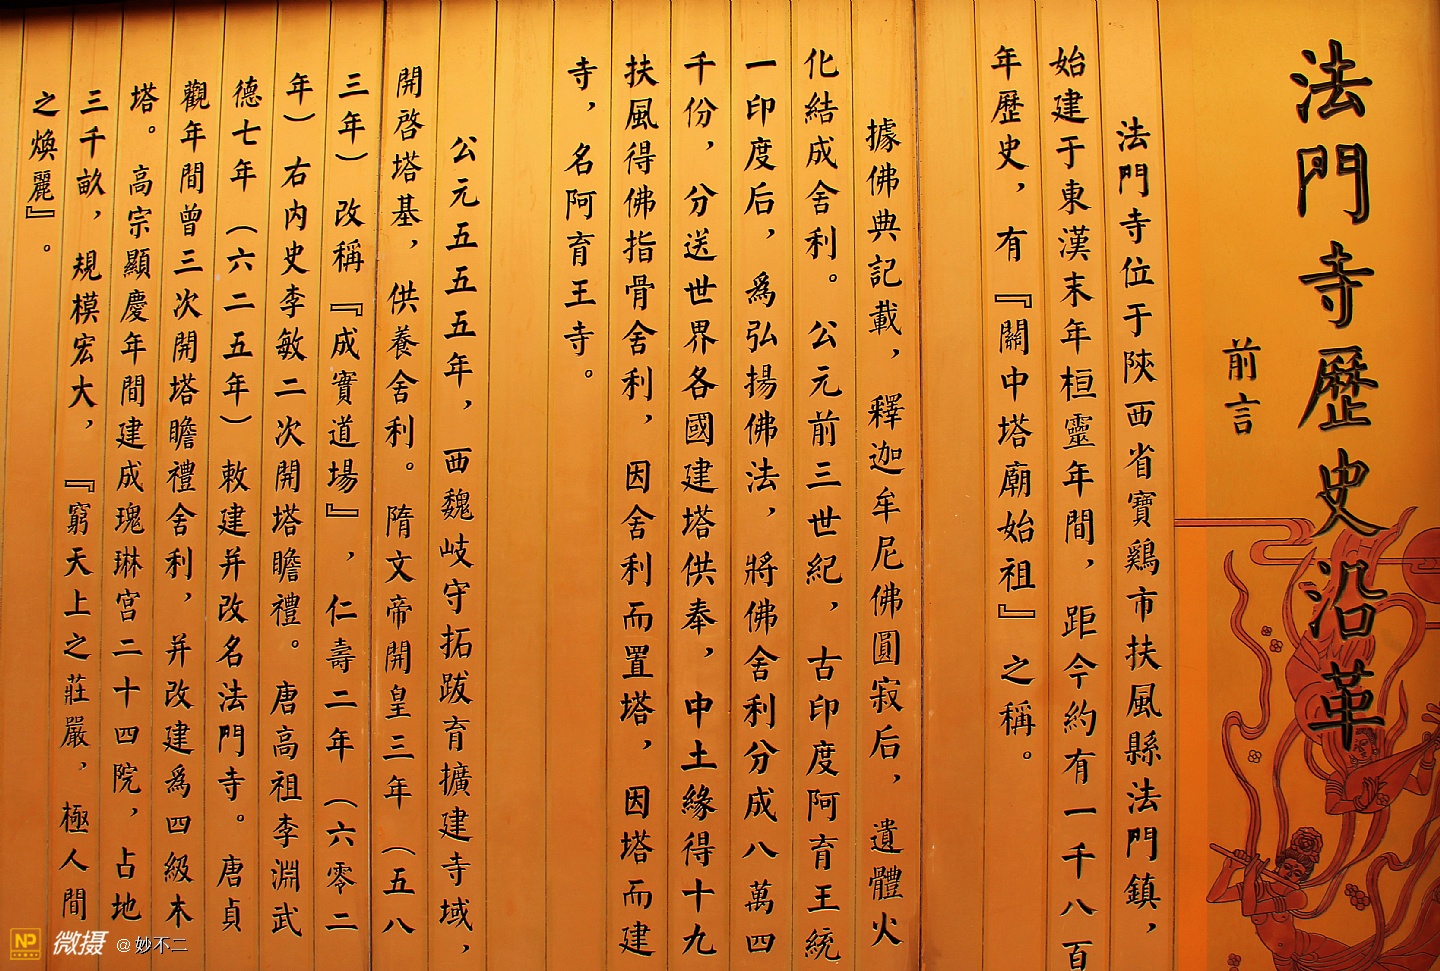 法門寺歷史沿革
前言
法門寺位于陝西省寶鷄市扶風縣法門鎮，
始建于東漢末年桓靈年間，距今約有一千八百
年歷史，有『關中塔廟始祖』之稱。
據佛典記載，釋迦牟尼佛圓寂后，遺體火
化結成舍利。公元前三世紀，古印度阿育王統
一印度后，爲弘揚佛法，將佛舍利分成八萬四
千份，分送世界各國建塔供奉，中土緣得十九
扶風得佛指骨舍利，因舍利而置塔，因塔而建
寺，名阿育王寺。
公元五五五年，西魏岐守拓跋育擴建寺域，
開啓塔基，供養舍利。隋文帝開皇三年（五八
三年）改稱『成實道場』，仁壽二年（六零二
年）右內史李敏二次開塔瞻禮。唐高祖李淵武
德七年（六二五年）敕建并改名法門寺。唐貞
觀年間曾三次開塔瞻禮舍利，并改建爲四級木
塔。高宗顯慶年間建成瑰琳宮二十四院，占地
三千畝，規模宏大，『窮天上之莊嚴，極人間
之煥麗』。
NP 微摄 @妙不二